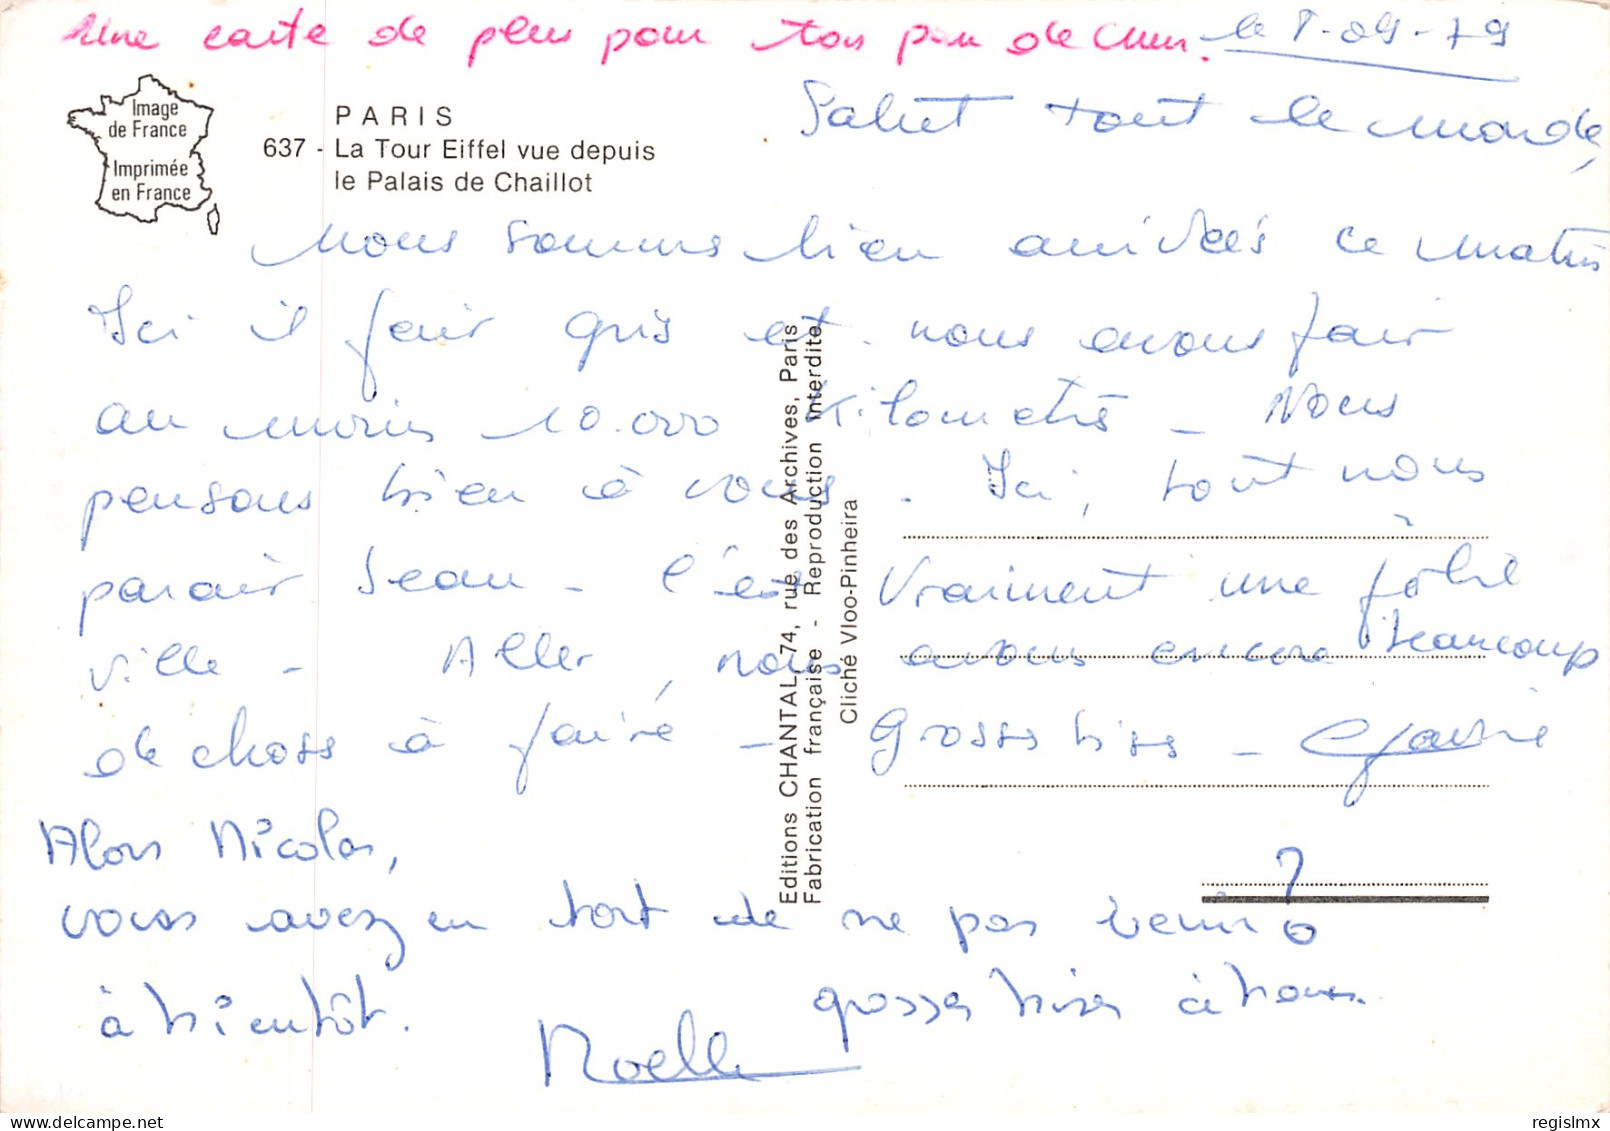 Une carte de plus pour ton de
le 8-09-79
Image
de France
Imprimée
en France
PARIS
637 - La Tour Eiffel vue depuis
le Palais de Chaillot
Salut tout le monde,
Nous sommes bien arrivées ce matin
Ici il fait gris et nous avons fait
au moins 10.000 kilomètres - Nous
pensons bien à vous. Ici, tout nous
parait beau - C'est vraiment une jolie
ville - Aller, nous avons encore beaucoup
de choses à faire - Grosses bises -
Alors Nicolas,
vous avez eu tort de ne pas venir ?
à bientôt. grosses bises à tous.
Noelle
Editions CHANTAL-74, rue des Archives, Paris
Fabrication française - Reproduction interdite
Cliché Vloo-Pinheira
regislmx